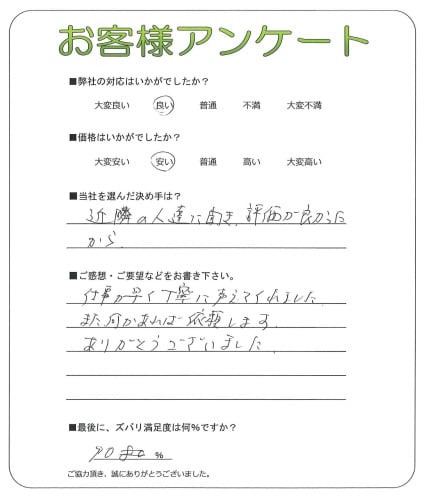 お客様アンケート
■弊社の対応はいかがでしたか?
大変良い 良い 普通 不満 大変不満
■価格はいかがでしたか?
大変安い 安い 普通 高い 大変高い
■当社を選んだ決め手は?
近隣の人達に聞き、評価が良かった
から、
■ご感想・ご要望などをお書き下さい。
仕事が早く丁寧に え くれました
また何かあれば依頼します。
ありがとうございました
■最後に、ズバリ満足度は何%ですか?
90 %
ご協力頂き、誠にありがとうございました。